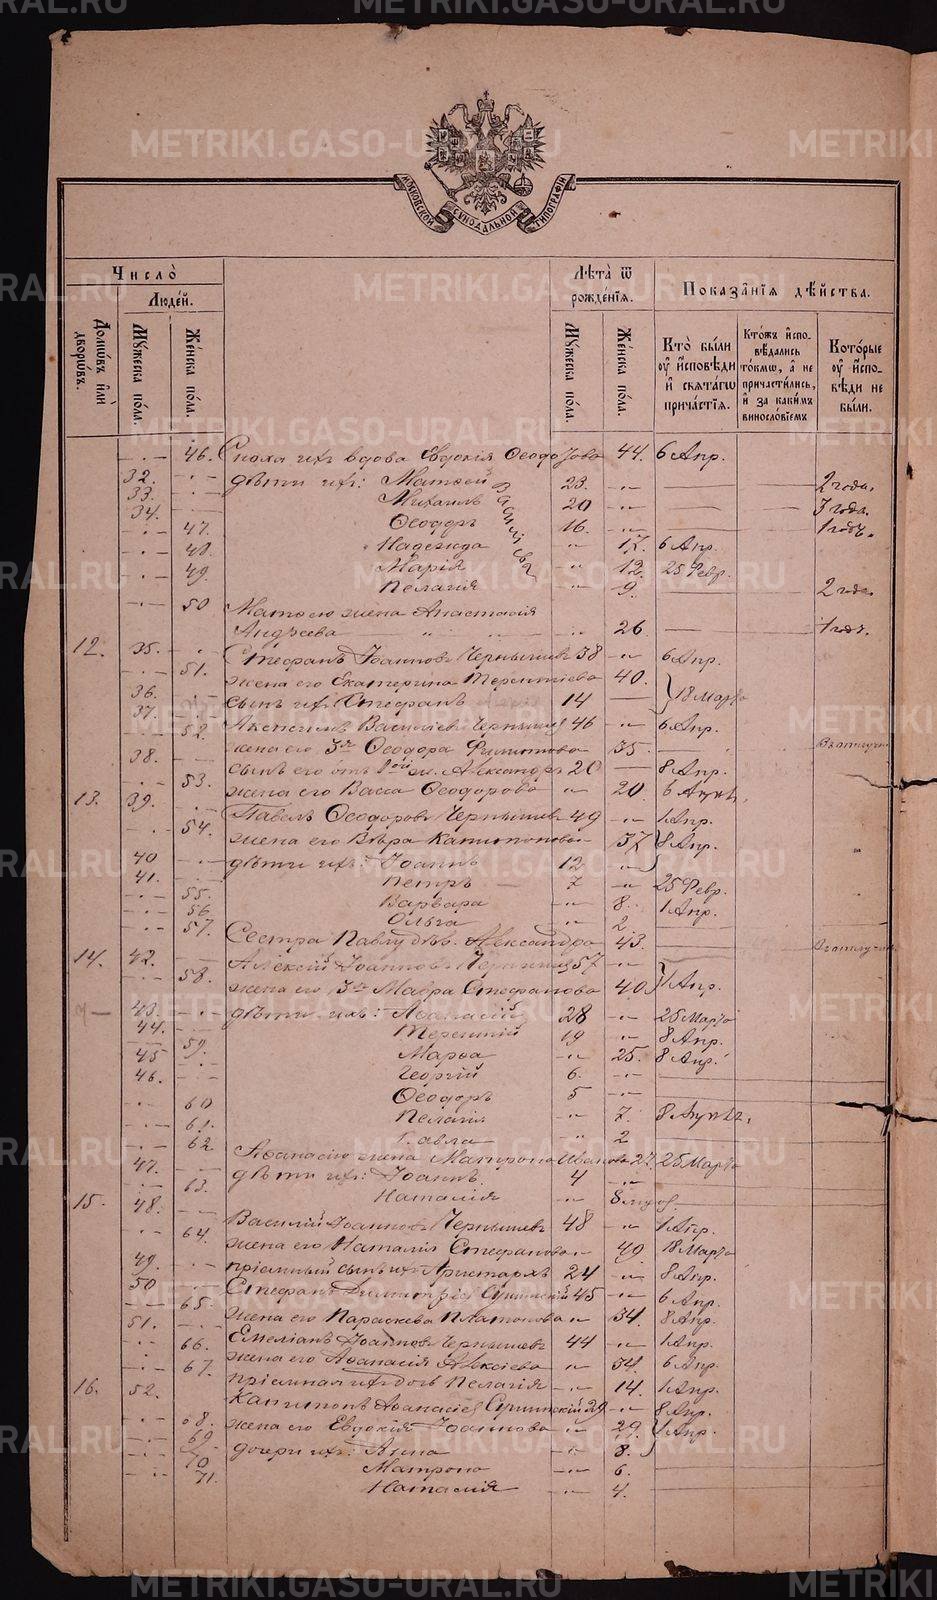 METRIKI.GASO-URAL.RU
МОСКОВСКОЙ СУНОДАЛЬНОЙ ТИПОГРАФІИ
Число̀
Домѡвъ и҆лѝ дворѡвъ.
Люде́й.
Мꙋ́жеска по́ла.
Же́нска по́ла.
Лѣ̑та ѿ рожде́нїѧ.
Мꙋ́жеска по́ла.
Же́нска по́ла.
Показа̑нїѧ дѣ́йства.
Кто̀ бы́ли ᲂу҆ и҆сповѣди и҆ свѧта́гѡ прича́стїѧ.
Кто́жъ и҆сповѣ́дались то́кмѡ, а҆ не причасти́лись, и҆ за каки́мъ винословїемъ
Кото́рые ᲂу҆ и҆сповѣди не бы́ли.
46. Сноха ихъ вдова Евдокія Ѳеодорова 44. 6 Апр.
32. дѣти ихъ: Матѳей 23. 2 года.
33. Михаилъ 20 3 года.
34. Ѳеодоръ 16 1 годъ.
47. Надежда 17. 6 Апр.
48. Марія 12. 25 Февр.
49. Пелагія 9. 2 года
50 Матѳею жена Анастасія
Андреева 26. 1 годъ.
12. 35. Стефанъ Іоанновъ Чернышевъ 38 6 Апр.
51. жена его Екатерина Терентіева 40. 18 Марта
36. сынъ ихъ Стефанъ 14
37. Василіевъ Чернышевъ 46 6 Апр.
52. жена его 3я Ѳеодора Филиппова 35.
38. сынъ его отъ 1ой ж. Александръ 20 8 Апр.
53. жена его Васса Ѳеодорова 20. 6
13. 39. Павелъ Ѳеодоровъ Чернышевъ 49 1 Апр.
54. жена его Вѣра Капитонова 37 8 Апр.
40 дѣти ихъ: Іоаннъ 12
41. Петръ 7 25 Февр.
55. Варвара 8. 1 Апр.
56. Ольга 2
57. Сестра Павлу дѣв. Александра 43.
14. 42. Алексій Іоанновъ Чернышевъ 57
58. жена его 3я Мавра Стефанова 40 1 Апр.
43. дѣти ихъ: Аѳанасій 28 25 Марта
44. Терентій 19 8 Апр.
59. Марѳа 25. 8 Апр.
45 Георгій 6.
46. Ѳеодоръ 5
60 Пелагія 7. 8
61. Павла 2
62 Аѳанасію жена Матрона Иванова 27. 25 Марта
47. дѣти ихъ: Іоаннъ 4
63. Наталія 8
15. 48. Василій Іоанновъ Чернышевъ 48 1 Апр.
64. жена его Наталія Стефанова 49 18 Марта
49. пріемный сынъ ихъ Аристархъ 24 8 Апр.
50 Стефанъ Димитріевъ 45 6 Апр.
65. жена его Параскева Платонова 34. 8 Апр.
51. Емеліанъ Іоанновъ Чернышевъ 44 1 Апр.
66. жена его Аѳанасія Алексіева 34 6 Апр.
67. пріемная ихъ дочь Пелагія 14. 1 Апр.
16. 52. Капитонъ Аѳанасіев 29 8 Апр.
68. жена его Евдокія Іоаннова 29. 1 Апр.
69 дочери ихъ: Анна 8.
70 Матрона 6.
71. Наталія 4.